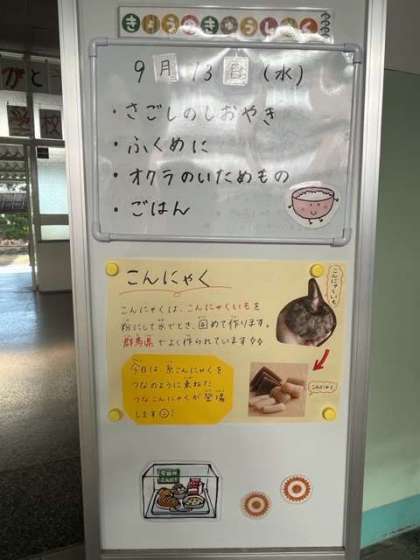 きょうのきゅうしょく
9月13日(水)
・さごしのしおやき
・ふくめに
・オクラのいためもの
・ごはん
こんにゃく
こんにゃくは、こんにゃくいもを
粉にして水でとき、固めて作ります。
群馬県でよく作られています
今日は 糸こんにゃくを
つなのように束ねた
つなこんにゃくが登場
します
こんにゃくいも